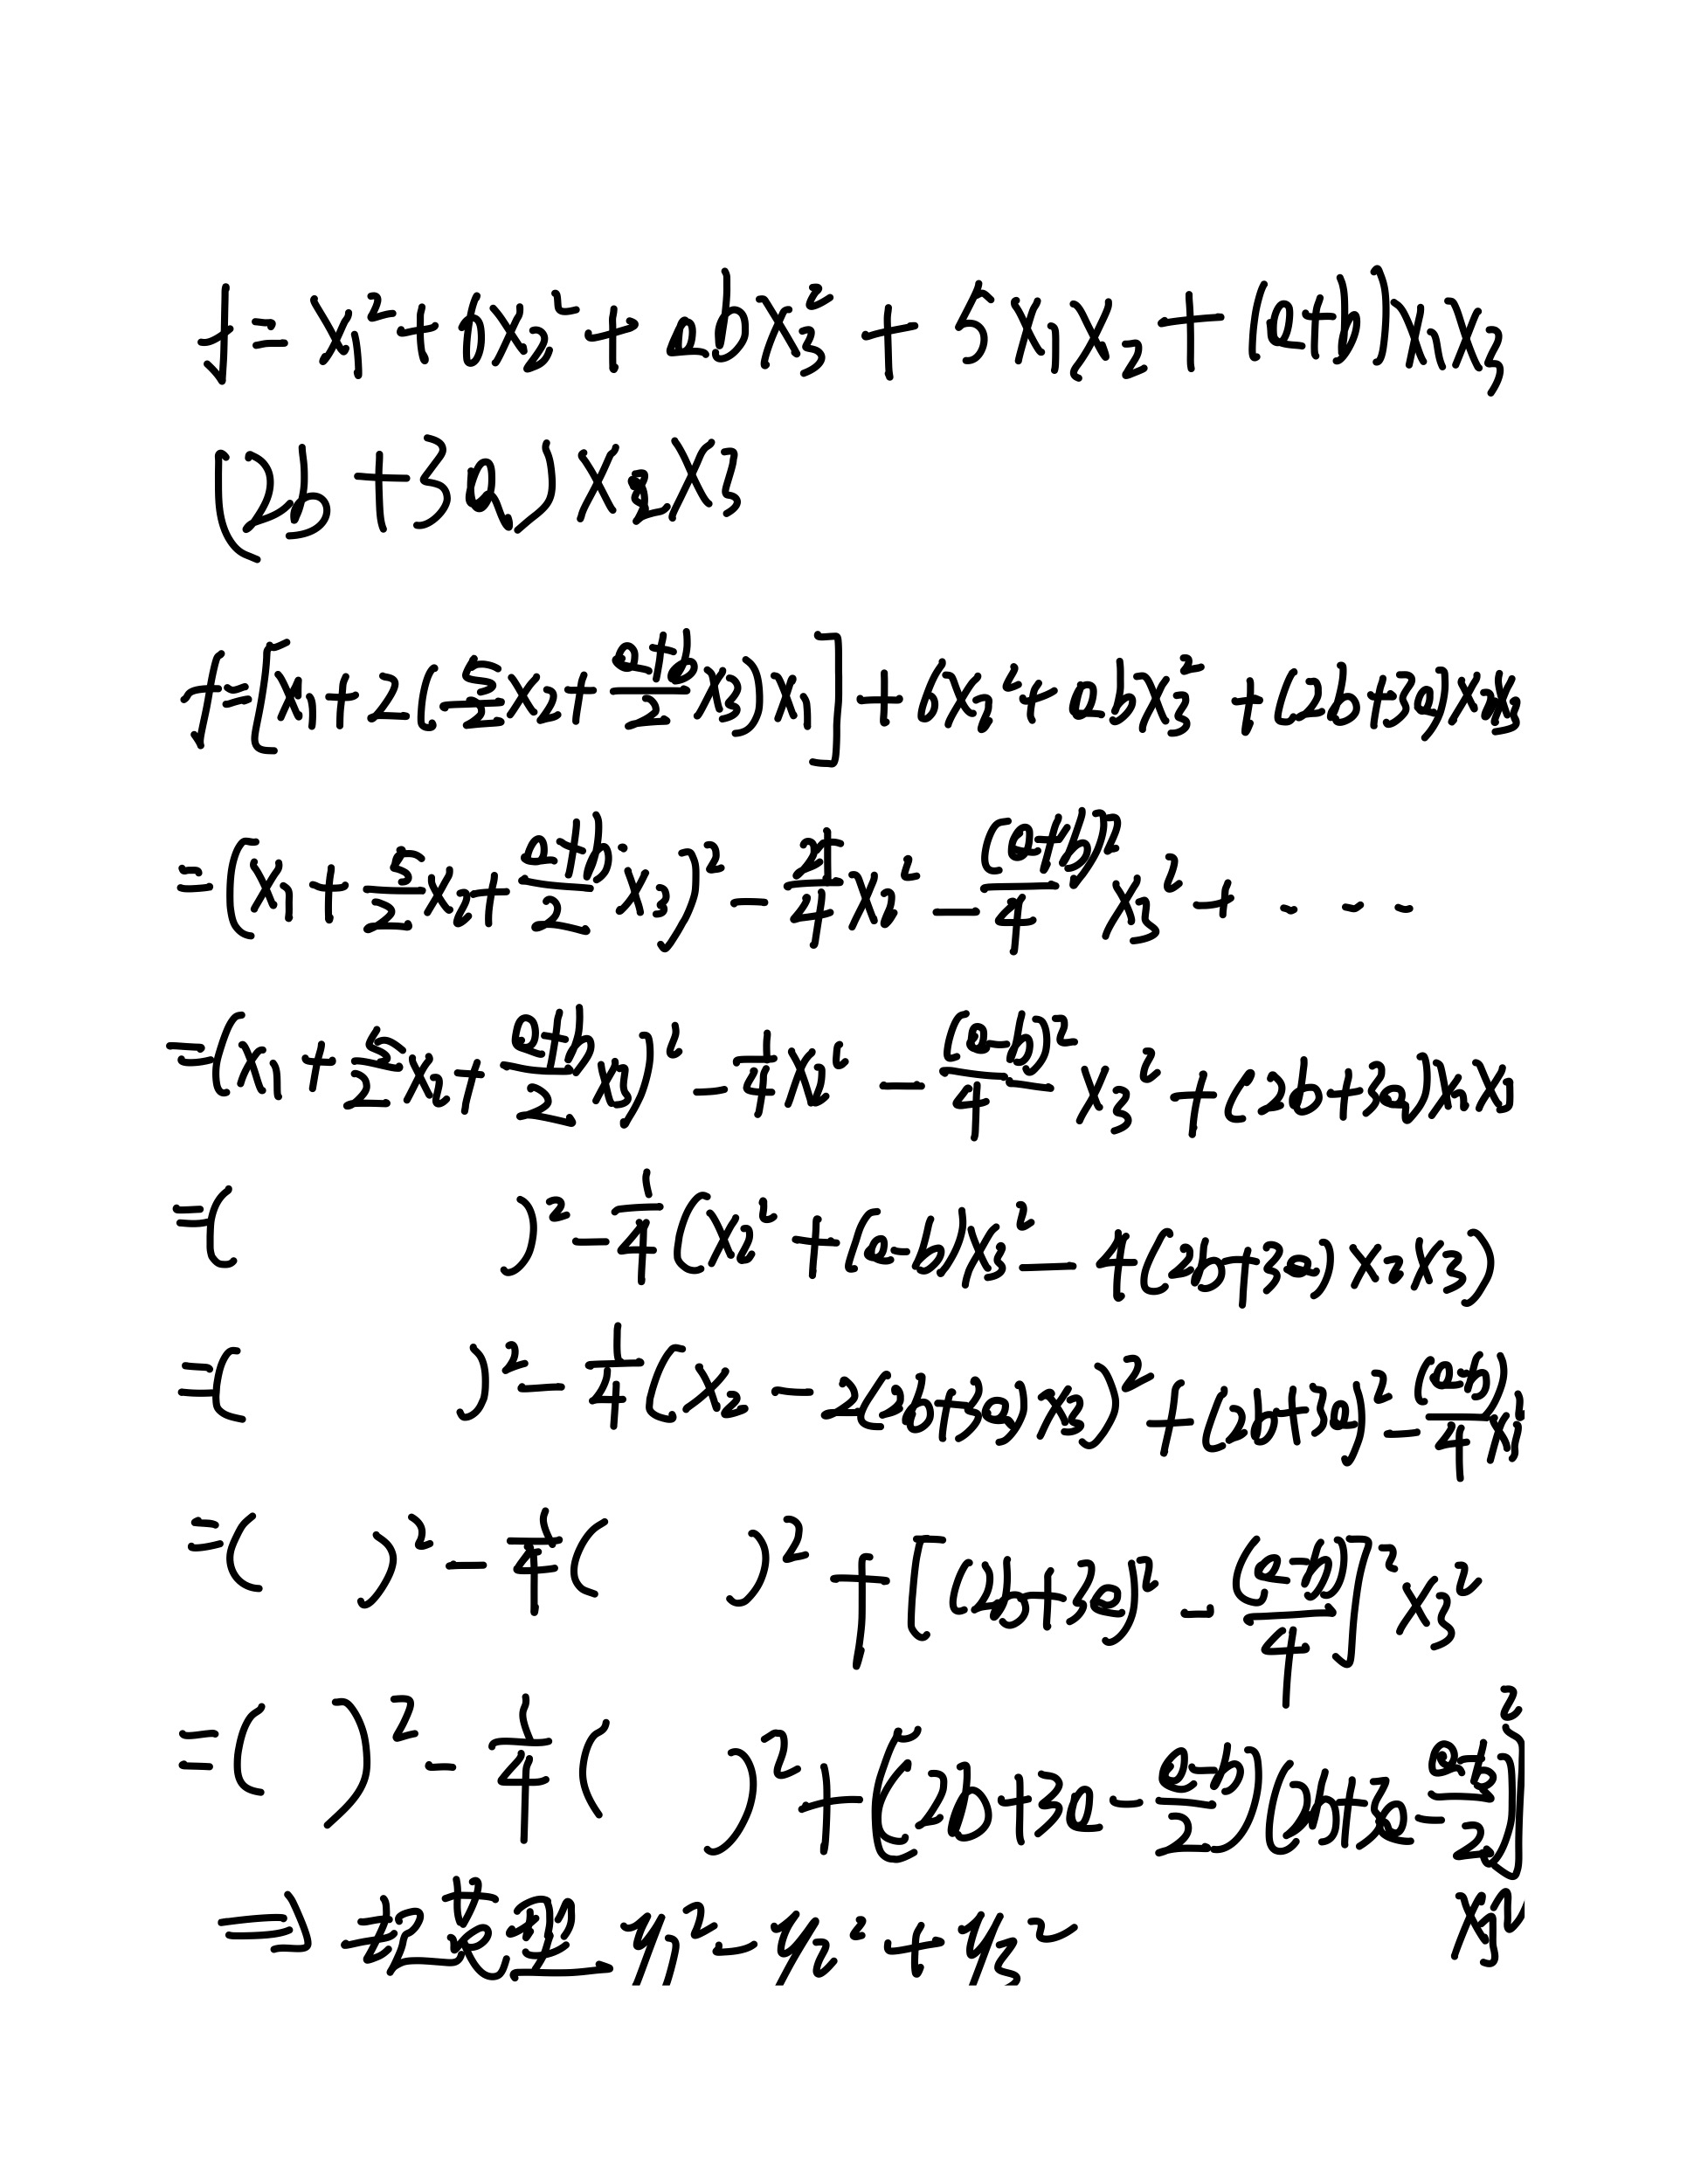 f = x₁² + 6x₂² + abx₃² + 5x₁x₂ + (a+b)x₁x₃
(2b+3a)x₂x₃
f = [x₁ + 2(5/2 x₂ + a+b/2 x₃)x₁] + 6x₂² + abx₃² + (2b+3a)x₂x₃
= (x₁ + 5/2 x₂ + a+b/2 x₃)² - /4 x₂² - (a+b)²/4 x₃² + ...
= (x₁ + 5/2 x₂ + a+b/2 x₃)² - 1/4 x₂² - (a-b)²/4 x₃² + (2b+3a)x₂x₃
= ( )² - 1/4 (x₂² + (a-b)x₃² - 4(2b+3a)x₂x₃)
= ( )² - 1/4 (x₂ - 2(2b+3a)x₃)² + (2b+3a)² - (a-b)/4 x₃²
= ( )² - 1/4 ( )² + [(2b+3a)² - (a-b)/4]² x₃²
= ( )² - 1/4 ( )² + [(2b+3a - a-b/2)(2b+3a - a-b/2)]²
x₃²
⇒ 规范型 y₁² - y₂² + y₃²